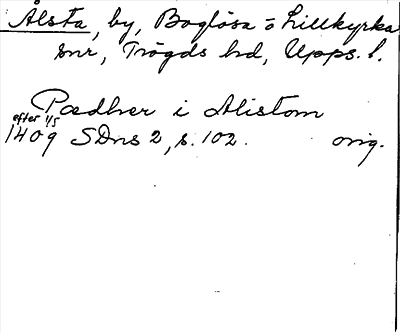 Ålsta, by, Boglösa o Lillkyrka
snr, Trögds hd, Upps. l.
Pædher i Alistom
efter 1/5
1409 SDns 2, s. 102. orig.